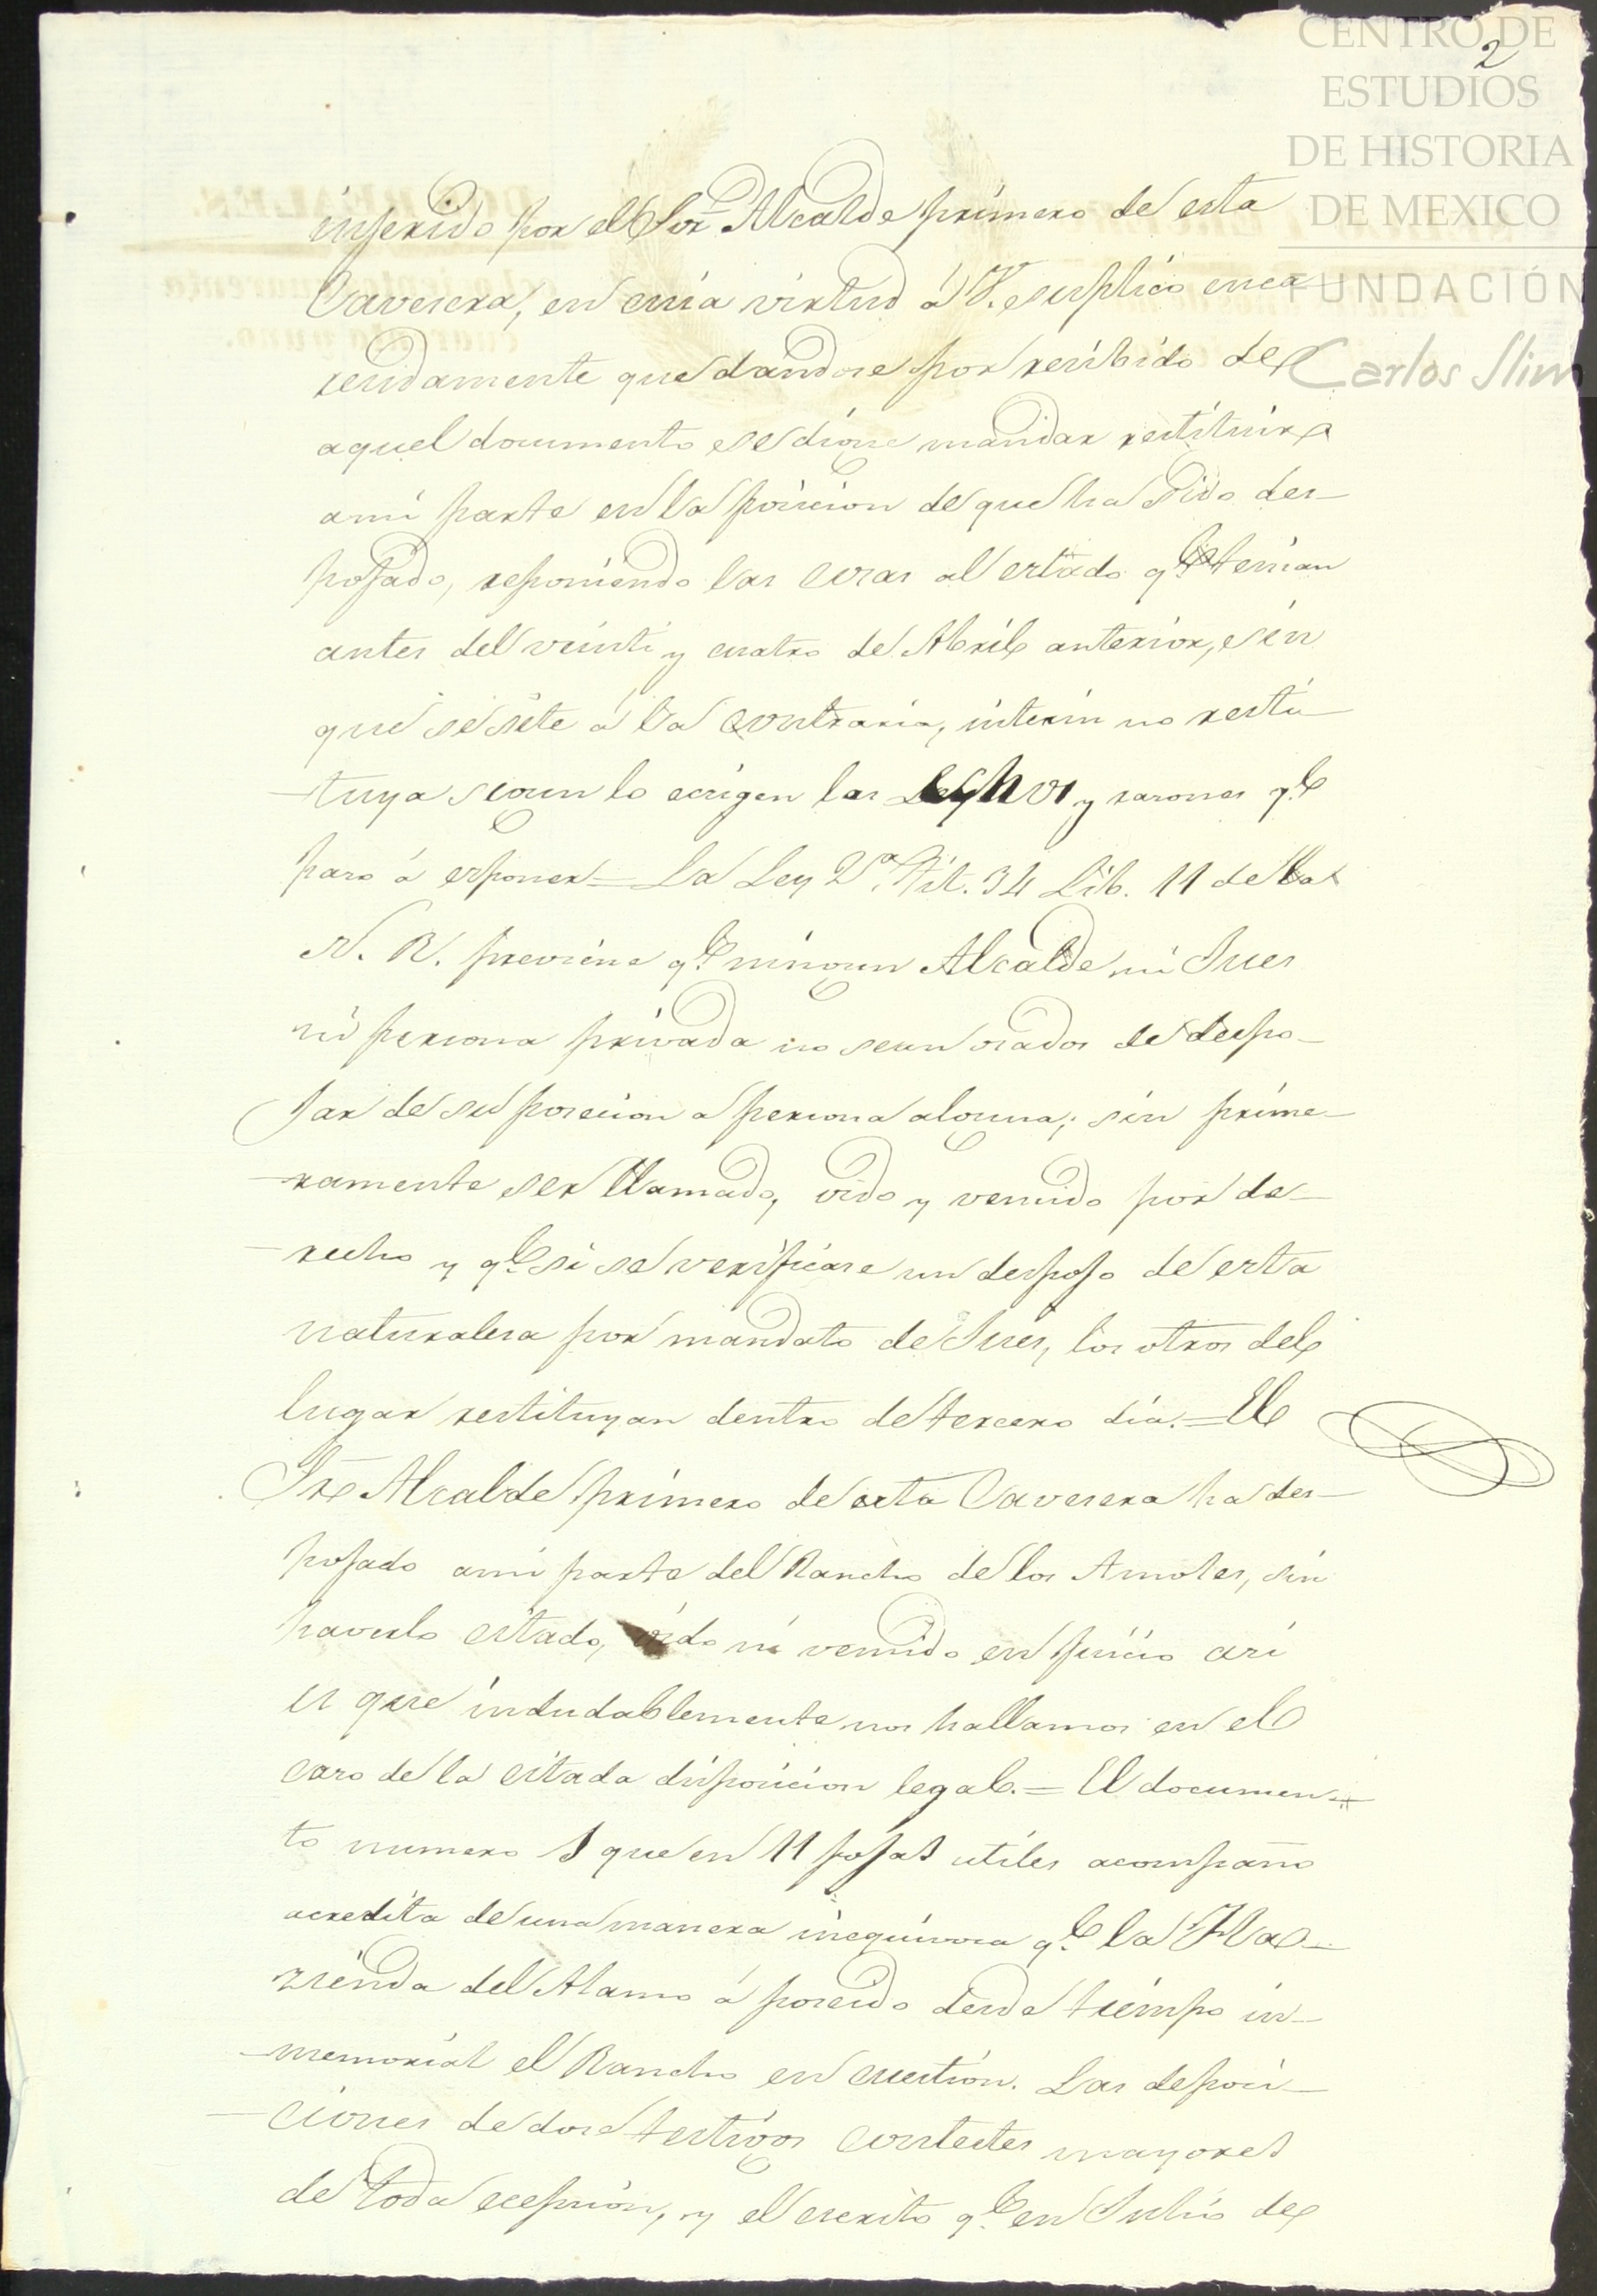 CENTRO DE
ESTUDIOS
DE HISTORIA
DE MEXICO
FUNDACIÓN
Carlos Slim
2
inferido por el Sor. Alcalde primero de esta
Cavesera, en cuia virtud á V. suplico enca
residamente que dandose por resibido de
aquel documento se digne mandar restituir
a mi parte en la posicion de que ha sido des-
pojado, reponiendo las cosas al estado qe. tenian
antes del veinti y cuatro de Abril anterior, sin
que se site á la contraria, interin no resti-
tuya segun lo ecsigen las y rasones qe.
paso á esponer = La Ley 2a. Tit. 34 Lib. 11 de la
N. R. previene qe. ningun Alcalde ni Jues
ni persona privada no sean osados de despo-
jar de su posecion a persona alguna; sin prime-
ramente ser llamado, oido y vencido por de-
recho y qe. si se verificase un despojo de esta
naturalesa por mandato de Jues, los otros del
lugar restituyan dentro de tercero dia. = El
Sr. Alcalde primero de esta Cavesera ha des-
pojado a mi parte del Rancho de los Amoles, sin
haverlo citado, oido ni vencido en juicio asi
es que indudablemente nos hallamos en el
caso de la citada disposicion legal. = El documen-
to numero 1 que en 11 fojas utiles acompaño
acredita de una manera inequivoca qe. la Ha-
zienda del Alamo á poseido desde tiempo in-
memorial el Rancho en cuestion. Las deposi-
ciones de dose testigos contestes mayores
de toda ecepsion, y el escrito qe. en Julio de